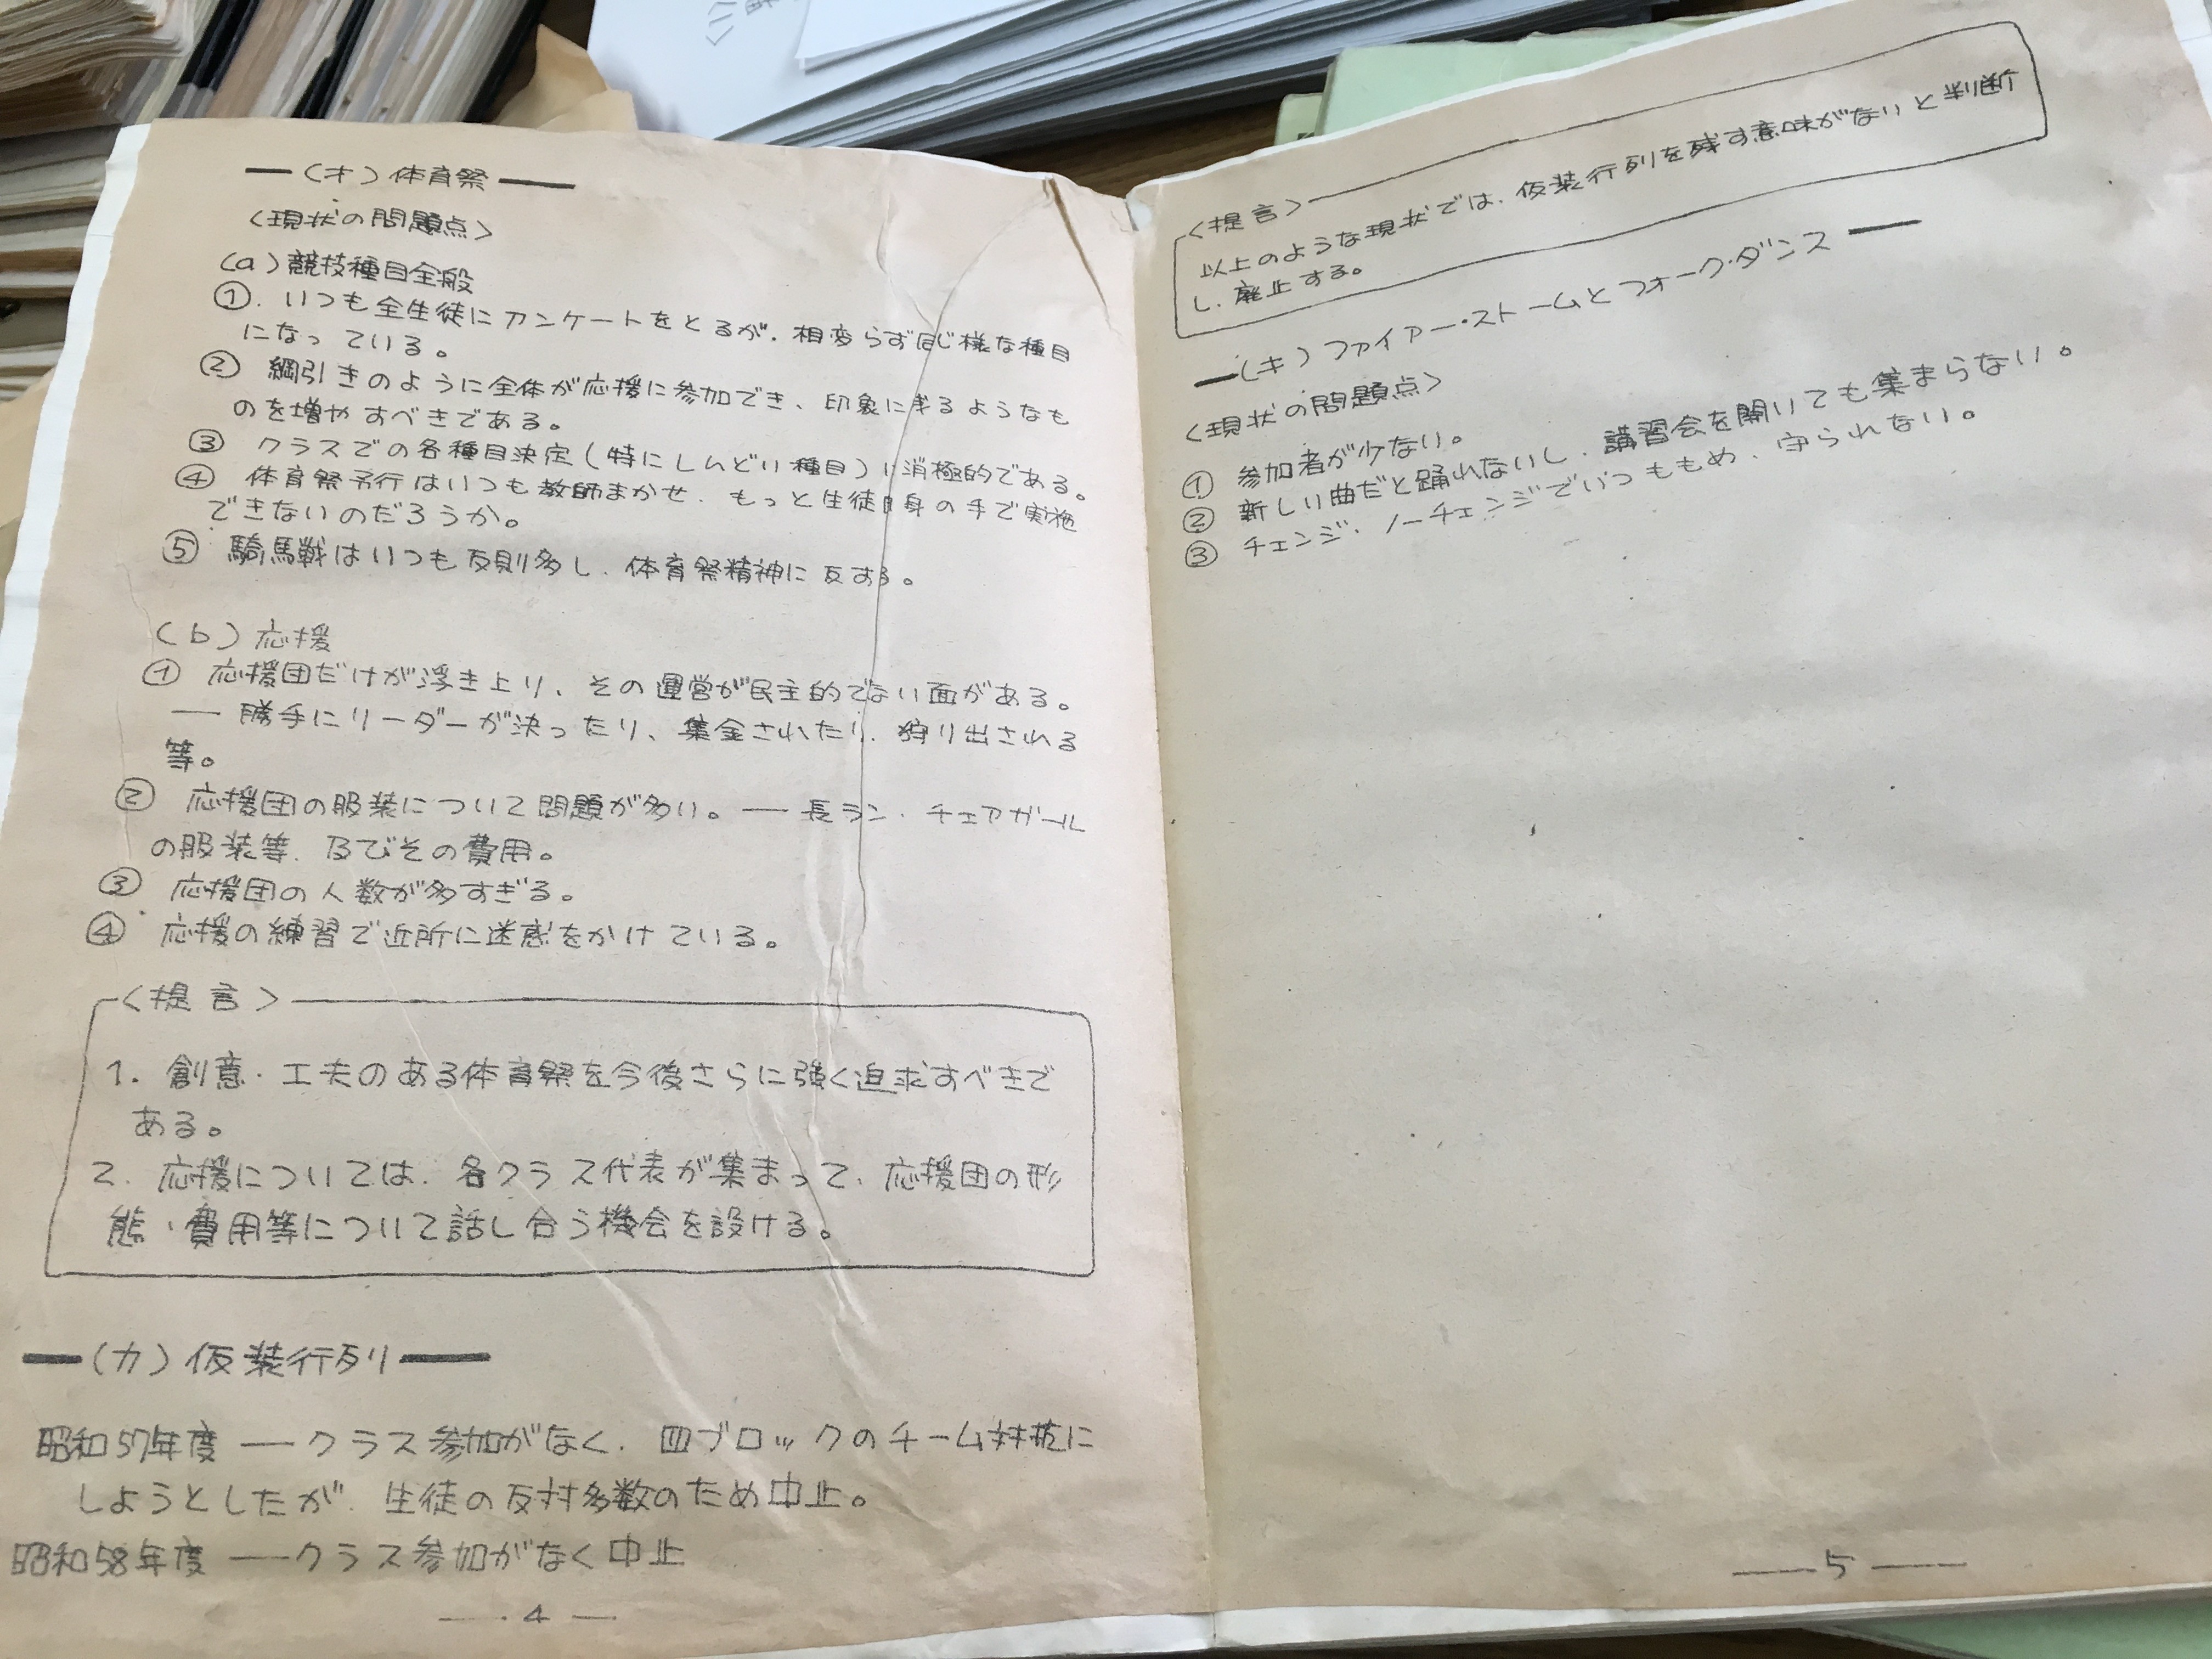 —(オ)体育祭—
〈現状の問題点〉
(a)競技種目全般
①.いつも全生徒にアンケートをとるが、相変らず同じ様な種目
になっている。
② 綱引きのように全体が応援に参加でき、印象に残るようなも
のを増やすべきである。
③ クラスでの各種目決定(特にしんどい種目)に消極的である。
④ 体育祭予行はいつも教師まかせ、もっと生徒自身の手で実施
できないのだろうか。
⑤ 騎馬戦はいつも反則多し、体育祭精神に反する。
(b)応援
① 応援団だけが浮き上り、その運営が民主的でない面がある。
—勝手にリーダーが決ったり、集金されたり、狩り出される
等。
② 応援団の服装について問題が多い。—長ラン・チェアガール
の服装等、及びその費用。
③ 応援団の人数が多すぎる。
④ 応援の練習で近所に迷惑をかけている。
〈提言〉
1. 創意・工夫のある体育祭を今後さらに強く追求すべきで
ある。
2. 応援については、各クラス代表が集まって、応援団の形
態・費用等について話し合う機会を設ける。
—(カ)仮装行列—
昭和57年度 —クラス参加がなく、四ブロックのチーム対抗に
しようとしたが、生徒の反対多数のため中止。
昭和58年度 —クラス参加がなく中止
—4—
〈提言〉
以上のような現状では、仮装行列を残す意味がないと判断
し、廃止する。
—(キ)ファイアー・ストームとフォーク・ダンス—
〈現状の問題点〉
① 参加者が少ない。
② 新しい曲だと踊れないし、講習会を開いても集まらない。
③ チェンジ、ノーチェンジでいつももめ、守られない。
—5—